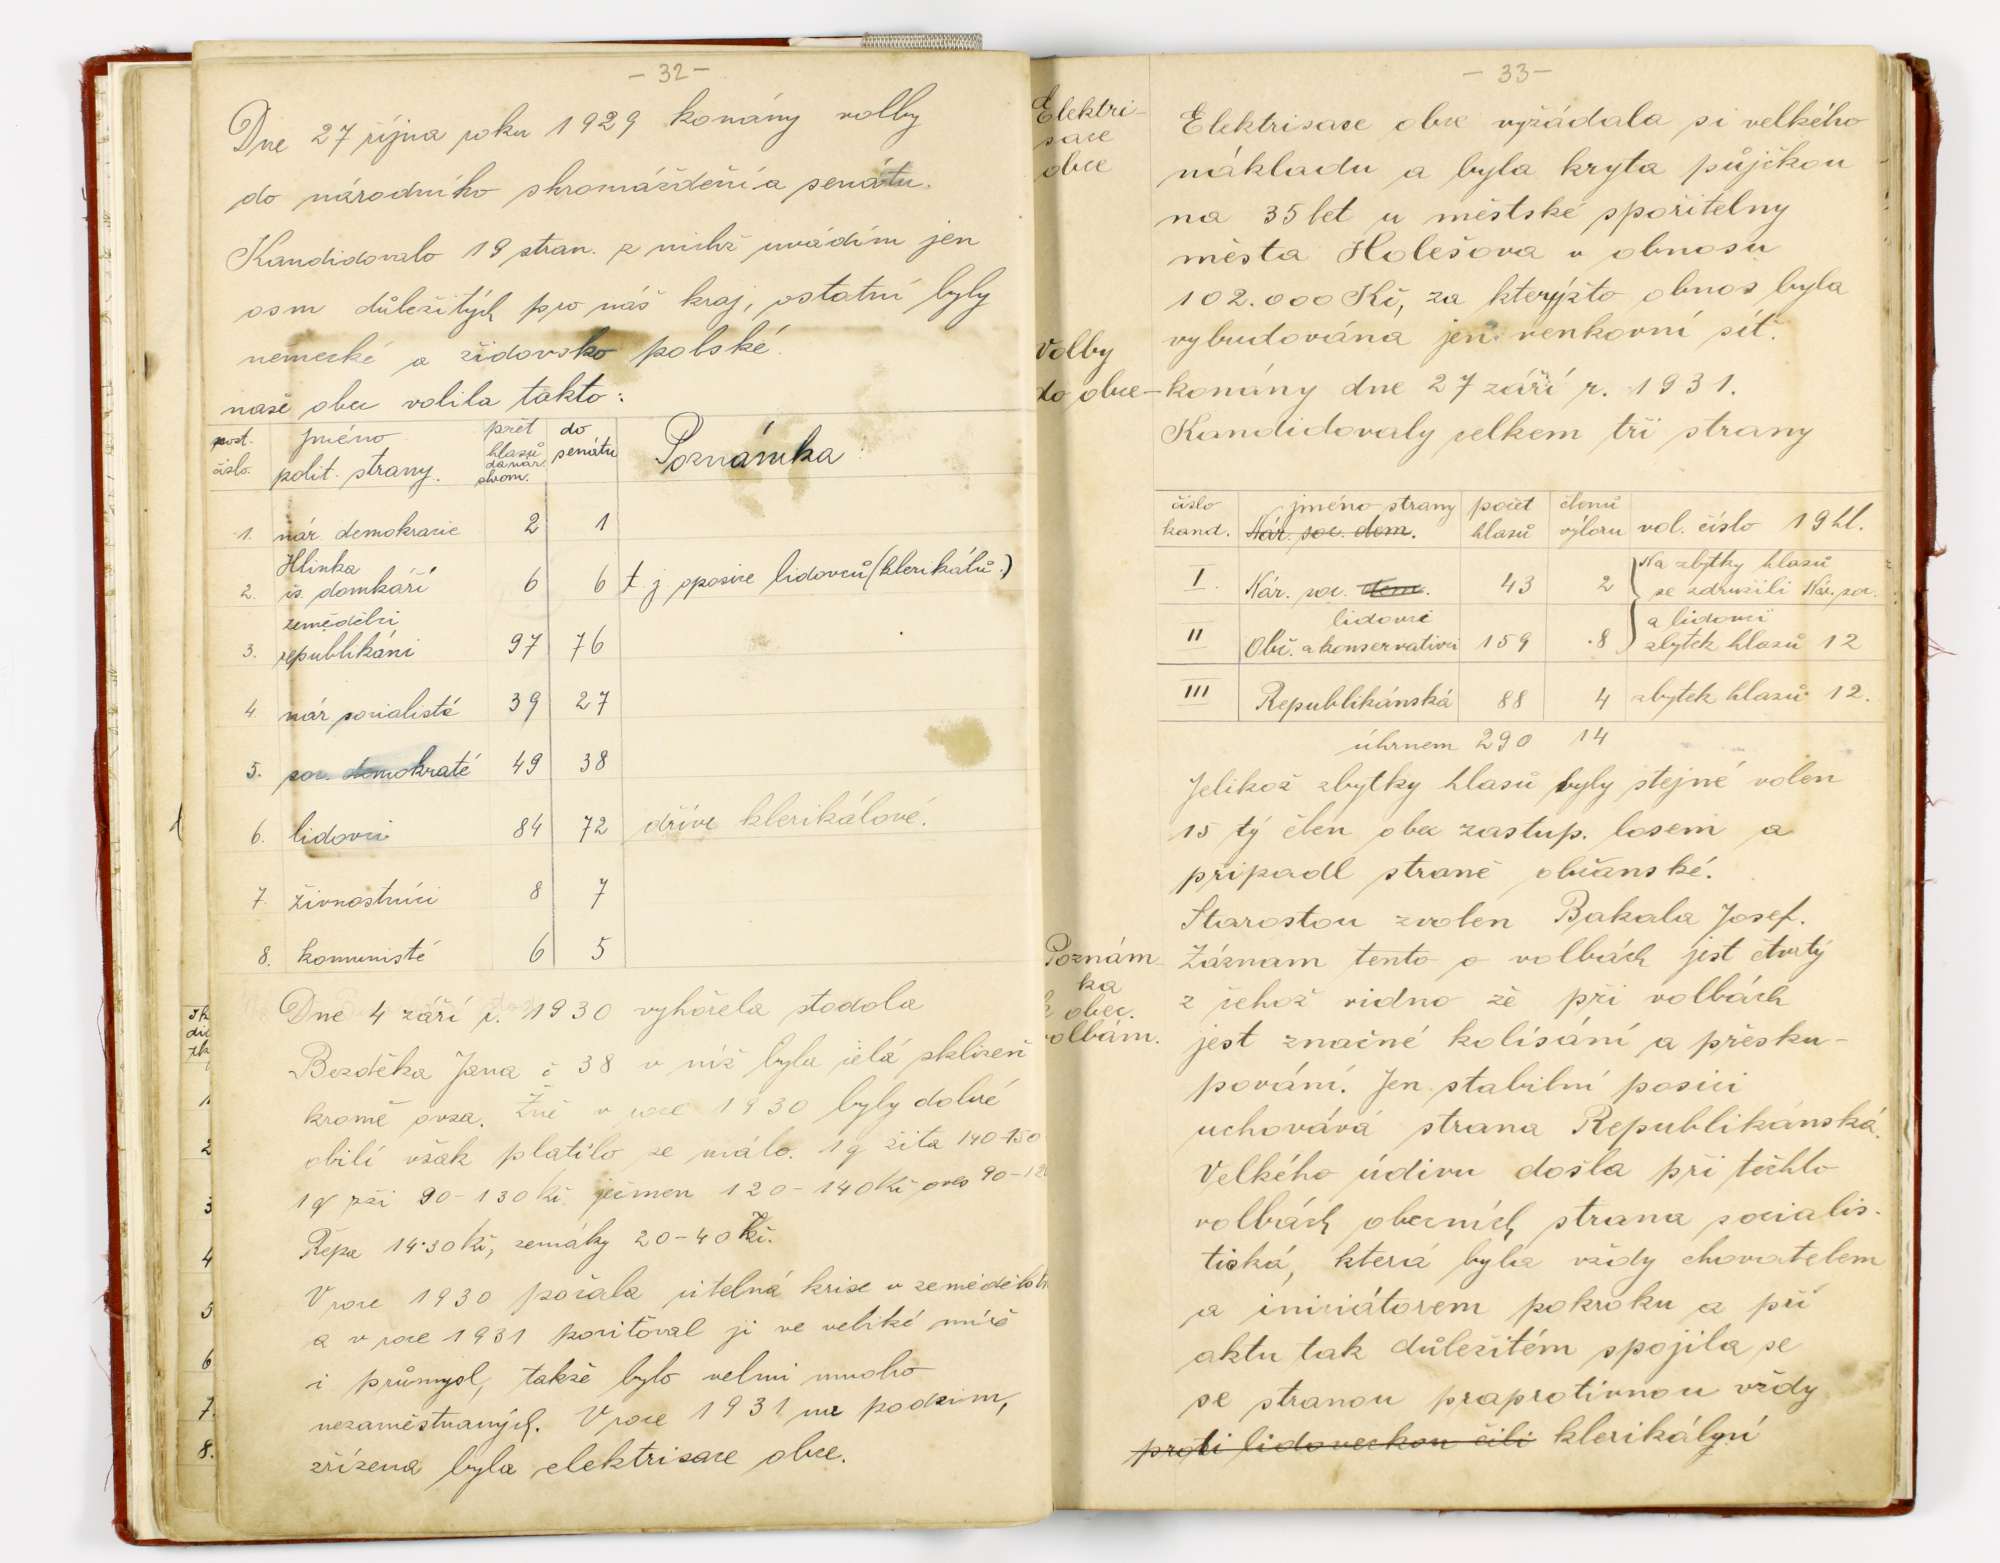 - 32 -
Dne 27 října roku 1929 konány volby
do národního shromáždění a senátu.
Kandidovalo 19 stran. z nichž uvádím jen
osm důležitých pro náš kraj, ostatní byly
německé a židovsko polské.
naše obec volila takto:
post. číslo. jméno polit. strany. počet hlasů do nár. shrom. do senátu Poznámka:
1. nár. demokracie 2 1
2. Hlinka čs. domkáři 6 6 t. j. oposice lidovců (klerikálů.)
3. zemědělci republikáni 97 76
4. nár socialisté 39 27
5. soc. demokraté 49 38
6. lidovci 84 72 dříve klerikálové.
7. živnostníci 8 7
8. komunisté 6 5
Dne 4 září r. 1930 vyhořela stodola
Bezděka Jana č 38 v níž byla celá sklizeň
kromě ovsa. Žně v roce 1930 byly dobré
obilí však platilo se málo. 1q žita 140-150
1q rži 90-130 Kč ječmen 120-140 Kč oves 90-12
Řepa 14·30 Kč, zemáky 20-40 Kč.
V roce 1930 počala citelná krise v zemědělství
a v roce 1931 pociťoval ji ve veliké míře
i průmysl, takže bylo velmi mnoho
nezaměstnaných. V roce 1931 na podzim,
zřízena byla elektrisace obce.
- 33 -
Elektri-
sace
obce
Elektrisace obce vyžádala si velkého
nákladu a byla kryta půjčkou
na 35 let u městské spořitelny
města Holešova v obnosu
102.000 Kč, za kterýžto obnos byla
vybudována jen venkovní síť.
Volby
do obce - konány dne 27 září r. 1931.
Kandidovaly celkem tři strany
číslo kand. jméno strany Nár. soc. dem. počet hlasů členů výboru vol. číslo 19 hl.
I. Nár. soc. dem. 43 2 Na zbytky hlasů se združili Nár. soc.
II lidovci Obč. a konservativci 159 8 a lidovci zbytek hlasů 12
III Republikánská 88 4 zbytek hlasů 12.
úhrnem 290 14
Jelikož zbytky hlasů byly stejné volen
15 tý člen obec zastup. losem a
připadl straně občanské.
Starostou zvolen Bakala Josef.
Poznám-
ka
k obec.
volbám.
Záznam tento o volbách jest čtvrtý
z čehož vidno že při volbách
jest značné kolísání a přesku-
pování. Jen stabilní posici
uchovává strana Republikánská.
Velkého údivu došla při těchto
volbách obecních strana socialis-
tická, která byla vždy chovatelem
a iniciátorem pokroku a při
aktu tak důležitém spojila se
se stranou praprotivnou vždy
proti lidoveckou čili klerikální